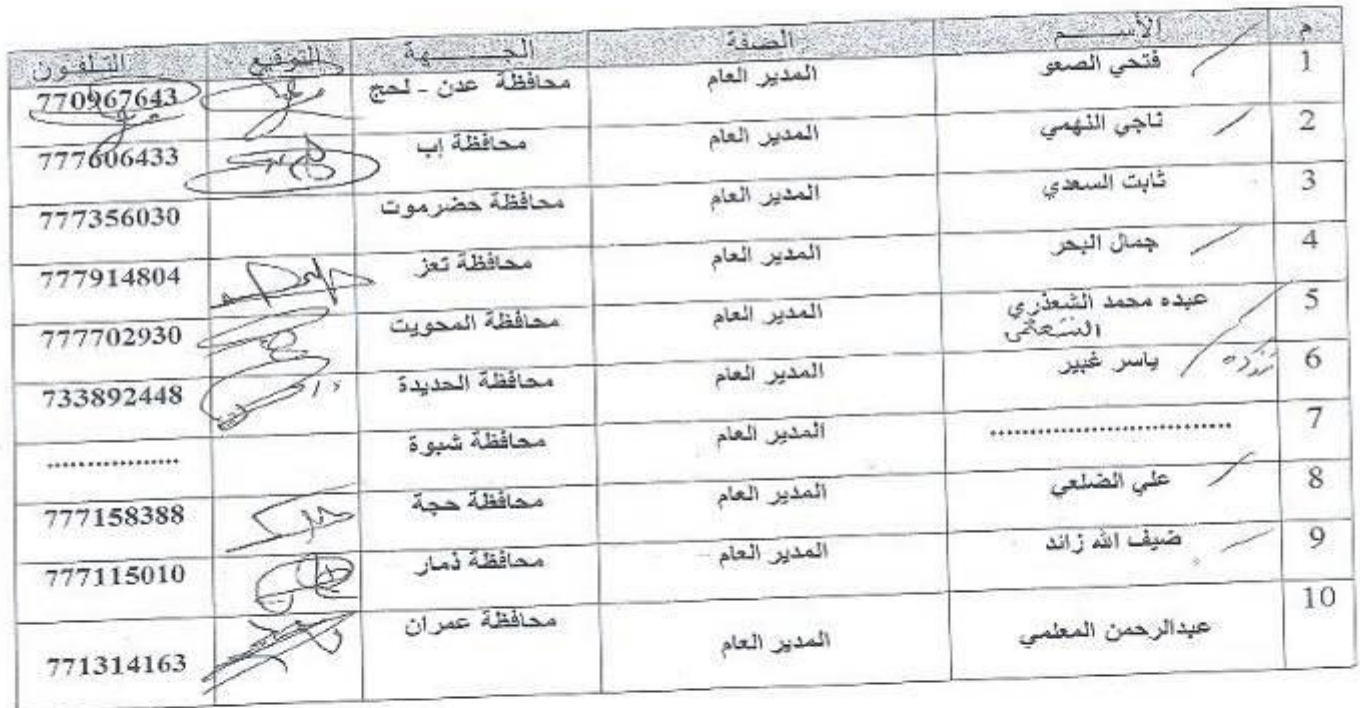 م الأســـــم الصفة الجـــــهة التوقيع التلفون
1 فتحي الصعو المدير العام محافظة عدن - لحج 770967643
2 ناجي النهمي المدير العام محافظة إب 777606433
3 ثابت السعدي المدير العام محافظة حضرموت 777356030
4 جمال البحر المدير العام محافظة تعز 777914804
5 عبده محمد الشعذري المدير العام محافظة المحويت 777702930
6 ياسر غبير المدير العام محافظة الحديدة 733892448
7 .............................. المدير العام محافظة شبوة .................
8 علي الضلعي المدير العام محافظة حجة 777158388
9 ضيف الله زائد المدير العام محافظة ذمار 777115010
10 عبدالرحمن المعلمي المدير العام محافظة عمران 771314163